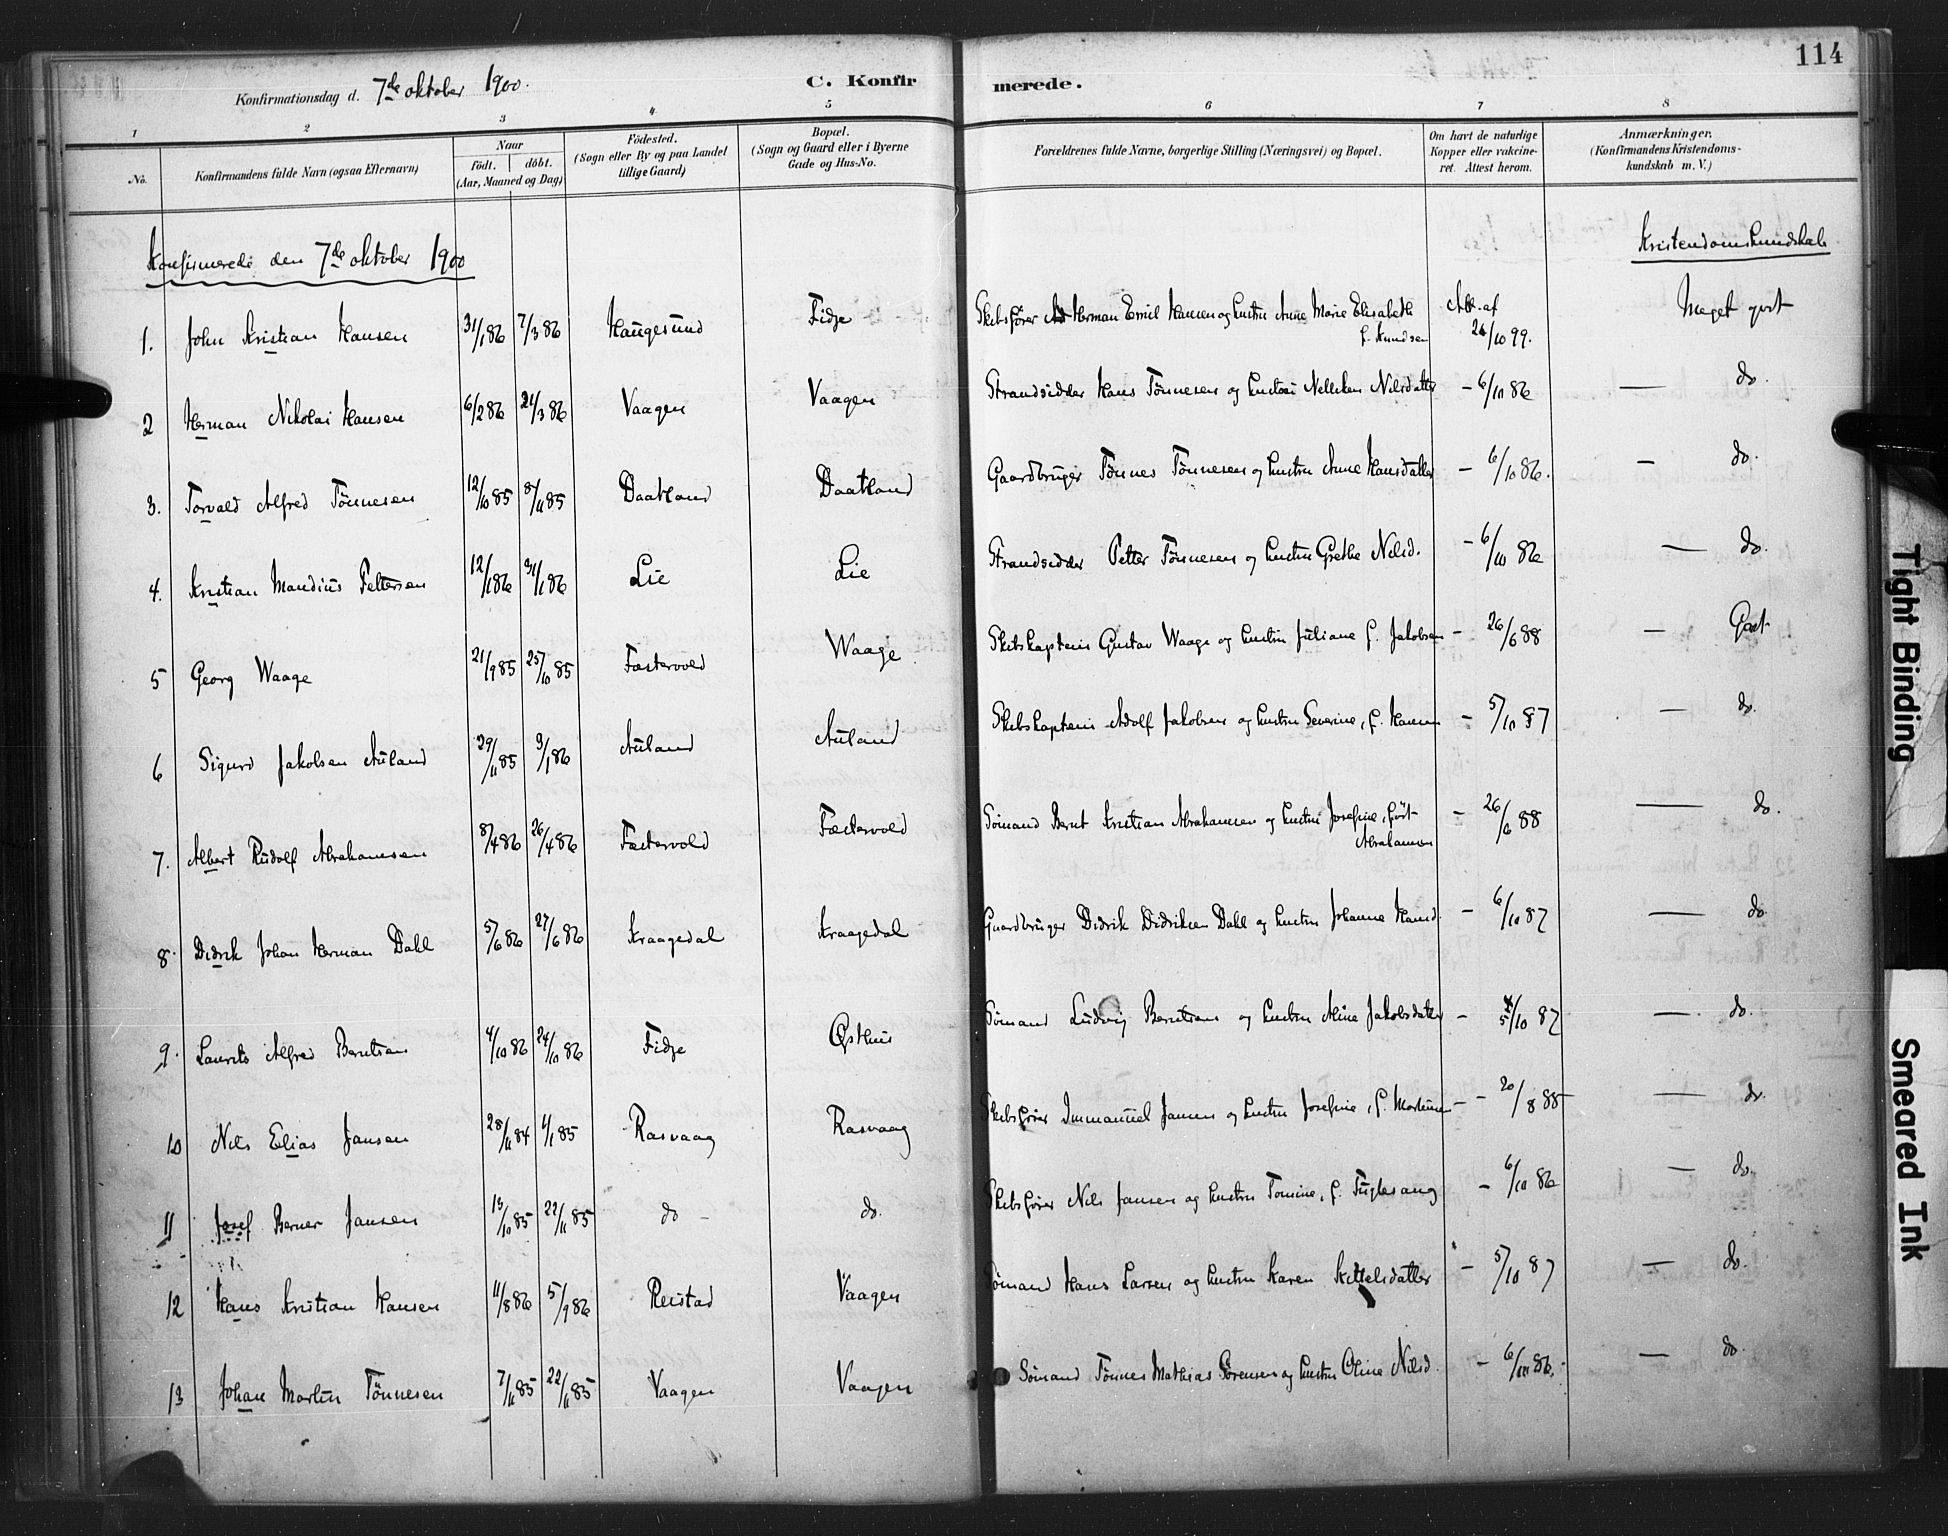 114
Konfirmationsdag d. 7de oktober 1900.
C. Konfirmerede.
1 2 3 4 5 6 7 8
No.
Konfirmandens fulde Navn (ogsaa Efternavn)
Naar
födt. döbt.
(Aar, Maaned og Dag)
Födested.
(Sogn eller By og paa Landet
tillige Gaard)
Bopæl.
(Sogn og Gaard eller i Byerne
Gade og Hus-No.
Forældrenes fulde Navne, borgerlige Stilling (Næringsvei) og Bopæl.
Om havt de naturlige
Kopper eller vakcine-
ret. Attest herom.
Anmærkninger.
(Konfirmandens Kristendoms-
kundskab m. V.)
Konfirmerede den 7de oktober 1900
Kristendomskundskab
1. John Kristian Hansen 31/1 86 7/3 86 Haugesund Fidje Skibsfører Herman Emil Hansen og hustru Anne Marie Elisabeth f. Knudsen Att. af 26/10 99. Meget godt
2 Herman Nikolai Hansen 6/2 86 21/3 86 Vaagen Vaagen Strandsidder Hans Tönnesen og hustru Nelleken Nilsdatter - 6/10 86 — do.
3. Torvald Alfred Tönnesen 12/10 85 8/11 85 Daatland Daatland Gaardbruger Tönnes Tönnesen og hustru Anne Hansdatter - 6/10 86. — do.
4. Kristian Mandius Pettersen 12/1 86 31/1 86 Lie Lie Strandsidder Petter Tönnesen og hustru Grethe Nilsd. - 6/10 86 — do.
5 Georg Waage 21/9 85 25/10 85 Fastervold Waage Skibskaptein Gustav Waage og hustru Juliane f. Jakobsen - 26/6 88 — Godt
6 Sigurd Jakobsen Auland 29/11 85 3/1 86 Auland Auland Skibskaptein Adolf Jakobsen og hustru Severine, f. Hansen - 5/10 87 — do.
7. Albert Rudolf Abrahamsen 8/4 86 26/4 86 Fæstervold Fæstervold Sömand Bernt Kristian Abrahamsen og hustru Josefine, født Abrahamsen - 26/6 88 — do.
8. Didrik Johan Herman Dahl 5/6 86 27/6 86 Kraagedal Kraagedal Gaardbruger Didrik Didriksen Dahl og hustru Johanne Hansd. - 6/10 87 — do
9. Laurits Alfred Berntsen 4/10 86 24/10 86 Fidje Østhus Sömand Ludvig Berntsen og hustru Aline Jakobsdatter - 5/10 87 — do.
10 Nils Elias Jansen 28/11 84 1/1 85 Rasvaag Rasvaag Skibsfører Immanuel Jansen og hustru Josefine, f. Mortensen - 20/8 88 — do.
11 Josef Berner Jansen 13/10 85 22/11 85 do - do. Skibsfører Nils Jansen og hustru Tomine, f. Fuglesang - 6/10 86 — do.
12 Hans Kristian Hansen 11/8 86 5/9 86 Reistad Vaagen Sömand Hans Larsen og hustru Karen Kittelsdatter - 5/10 87 — do.
13 Johan Martin Tönnesen 7/11 85 22/11 85 Vaagen Vaagen Sömand Tönnes Mathias Sörensen og hustru Oline Nilsd. - 6/10 86. — do.
Tight Binding
Smeared Ink